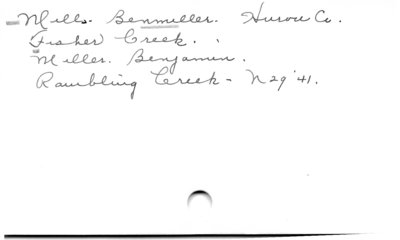 Mills. Benmiller. Huron Co.
Fisher Creek.
Miller. Benjamin.
Rambling Creek - N 29 '41.